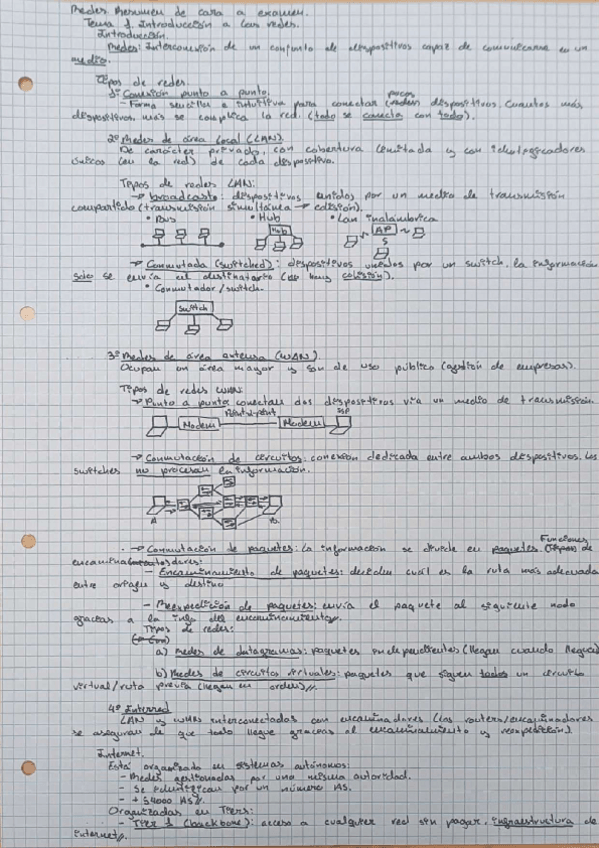 Redes Resumen de cara a examen.
Tema 1. Introducción a las redes.
Introducción.
Redes: Interconexión de un conjunto de dispositivos capaz de comunicarse en un
medio.
Tipos de redes.
1º Conexión punto a punto.
- Forma sencilla e intuitiva para conectar pocos dispositivos. Cuantos más
dispositivos, más se complica la red. (todo se conecta con todo).
2º Redes de área local (LAN).
De carácter privado, con cobertura limitada y con identificadores
únicos (en la red) de cada dispositivo.
Tipos de redes LAN:
→ broadcast: dispositivos unidos por un medio de transmisión
compartido (transmisión simultánea → colisión).
• Bus • Hub • Lan inalámbrica
Hub AP
→ Conmutada (switched): dispositivos unidos por un switch. la información
solo se envía al destinatario (no hay colisión).
• Conmutador/switch.
Switch
3º Redes de área extensa (WAN).
Ocupan un área mayor y son de uso público (gestión de empresas).
Tipos de redes WAN:
→ Punto a punto: conectan dos dispositivos vía un medio de transmisión.
Modem Point-2-point Modem ISP
→ Conmutación de circuitos: conexión dedicada entre ambos dispositivos. Los
switches no procesan la información.
A B
→ Conmutación de paquetes: la información se divide en paquetes. Funciones de
encaminadores:
- Encaminamiento de paquetes: deciden cuál es la ruta más adecuada
entre origen y destino
- Reexpedición de paquetes: envía el paquete al siguiente nodo
gracias a la info del encaminamiento.
Tipos de redes:
a) Redes de datagramas: paquetes independientes (llegan cuando llegan)
b) Redes de circuitos virtuales: paquetes que siguen todos un circuito
virtual/ruta previa (llegan en orden).
4º Interred
LAN y WAN interconectadas con encaminadores (los routers/encaminadores
se aseguran de que todo llegue gracias al encaminamiento y reexpedición).
Internet.
Está organizado en sistemas autónomos:
- Redes gestionadas por una misma autoridad.
- Se identifican por un número AS.
- + 54000 AS.
Organizadas en Tiers:
- Tier 1 (backbone): acceso a cualquier red sin pagar, infraestructura de
internet.